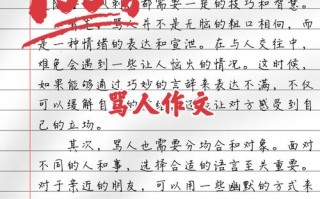 都需要一定的技巧和智慧。
骂人并不是无脑的粗口相向，而
是一种情绪的表达和宣泄。在与人交往中，
难免会遇到一些让人恼出的情况。这时候，
如果能够通过巧妙的言辞来表达不满，不仅
可以缓解自己的
让对方感受到自
己的立场。
骂人作文
其次，骂人也需要分场合和对象。面对
不同的人和事，选择合适的语言至关重要。
对于亲近的朋友，可以用一些幽默的方式来